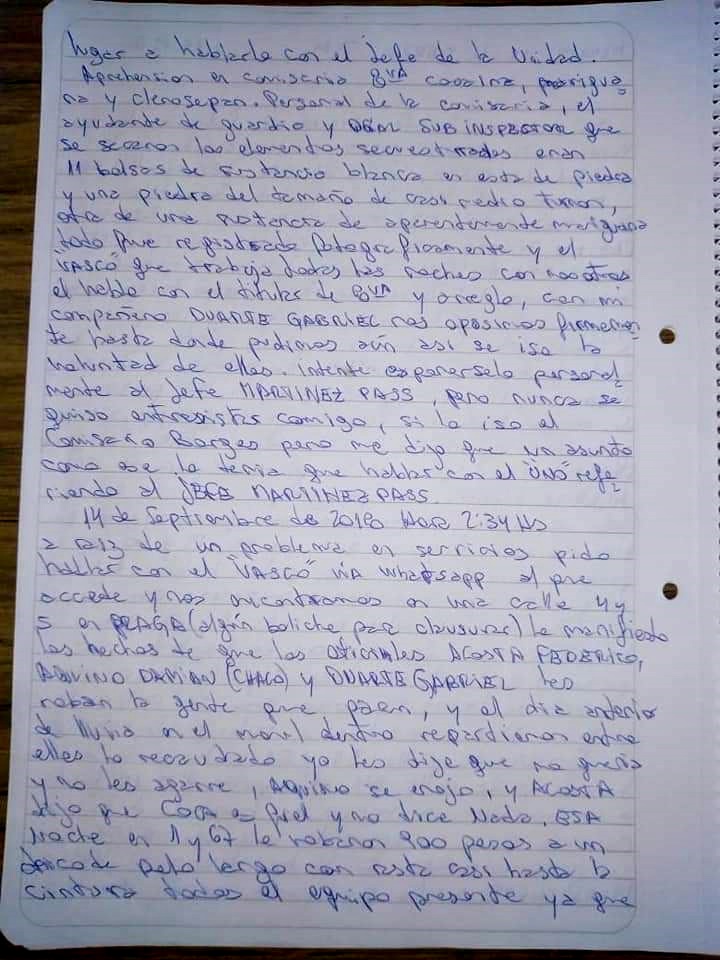 lugar a hablarlo con el Jefe de la Unidad.
Aprehension en comisaria 8VA cocaina, marigua
na y clonosepan. Personal de la comisaria, el
ayudante de guardia y SUB INSPECTOR que
se sacaron los elementos secuestrados eran
11 bolsas de sustancia blanca en esta de piedra
y una piedra del tamaño de casi medio limon,
otra de una sustancia de aparentemente mariguana
todo fue registrado fotograficamente y el
"VASCO" que trabaja todas las noches con nosotros
el hablo con el titular de 8VA y arreglo, con mi
compañero DUARTE GABRIEL nos oposimos firmemen
te hasta donde pudimos aún asi se iso la
voluntad de ellos. intente exponerselo personal
mente al Jefe MARTINEZ PASS, pero nunca se
quiso entrevistar comigo, si lo iso el
Comisario Borges pero me dijo que un asunto
como ese lo tenia que hablar con el "UNO" refi
riendo al JEFE MARTINEZ PASS.
14 de Septiembre de Hora 2:34 Hs
a raiz de un problema en servicios pido
hablar con el "VASCO" VIA Whatsapp al que
accede y nos encontramos en una calle 4 y
5 en PRAGA (algún boliche para clausurar) le manifiesto
los hechos de que los oficiales ACOSTA FEDERICO,
AQUINO DAMIAN (CHACO) y DUARTE GABRIEL les
roban la gente que paran, y el dia anterior
de lluvia en el movil dentro repartieron entre
ellos lo recaudado yo les dije que no queria
y no les agarre, AQUINO se enojo, y ACOSTA
dijo que COCA es fiel y no dice Nada. ESA
Noche en 11 y 67 le robaron 900 pesos a un
chico de pelo largo con rasta casi hasta la
cintura todos el equipo presente ya que